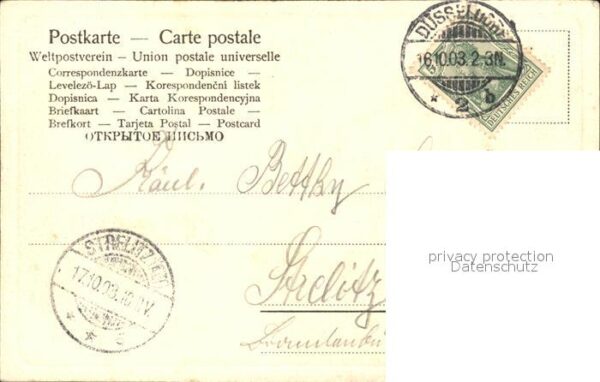 Postkarte — Carte postale
Weltpostverein – Union postale universelle
Correspondenzkarte — Dopisnice —
Levelező-Lap — Korespondenční listek
Dopisnica — Karta Korespondencyjna
Briefkaart — Cartolina Postale —
Brefkort — Tarjeta Postal — Postcard
ОТКРЫТОЕ ПИСЬМО
DÜSSELDORF
16.10.03. 2-3N.
* 2 b
DEUTSCHES REICH
Fräul. Betthy
STRELITZ
17.10.03.
Strelitz
privacy protection
Datenschutz